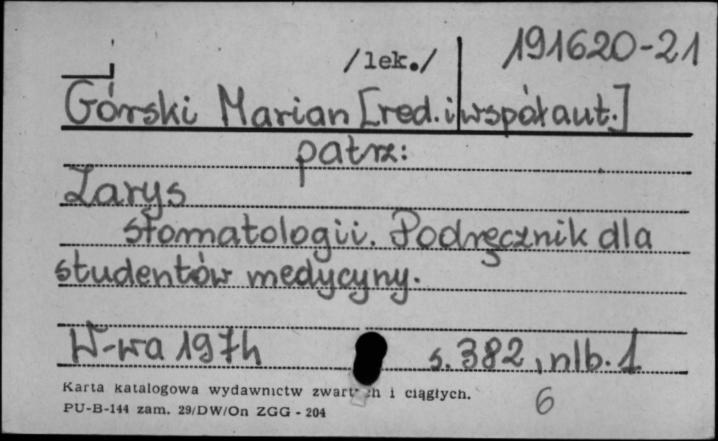 /lek./ 191620-21
Górski Marian [red. i współaut.]
patrz:
Zarys
stomatologii. Podręcznik dla
studentów medycyny.
W-wa 1974 s. 382, nlb. 1
Karta katalogowa wydawnictw zwartych i ciągłych.
6
PU-B-144 zam. 29/DW/On ZGG - 204